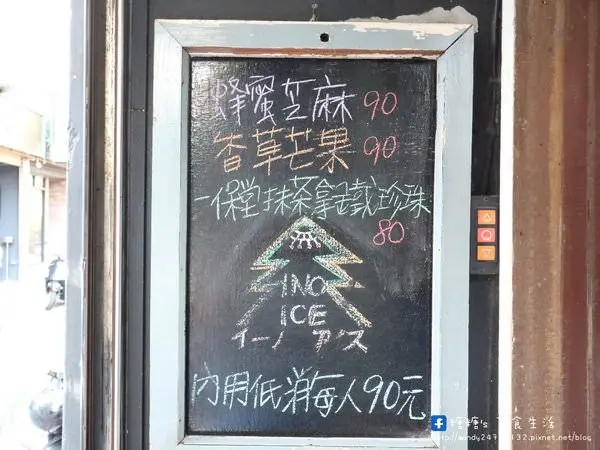 蜂蜜芝麻 90
香草芒果 90
一保堂抹茶拿鐵珍珠
80
INO
ICE
イーノ アイス
內用低消每人90元
糖糖's 享食生活